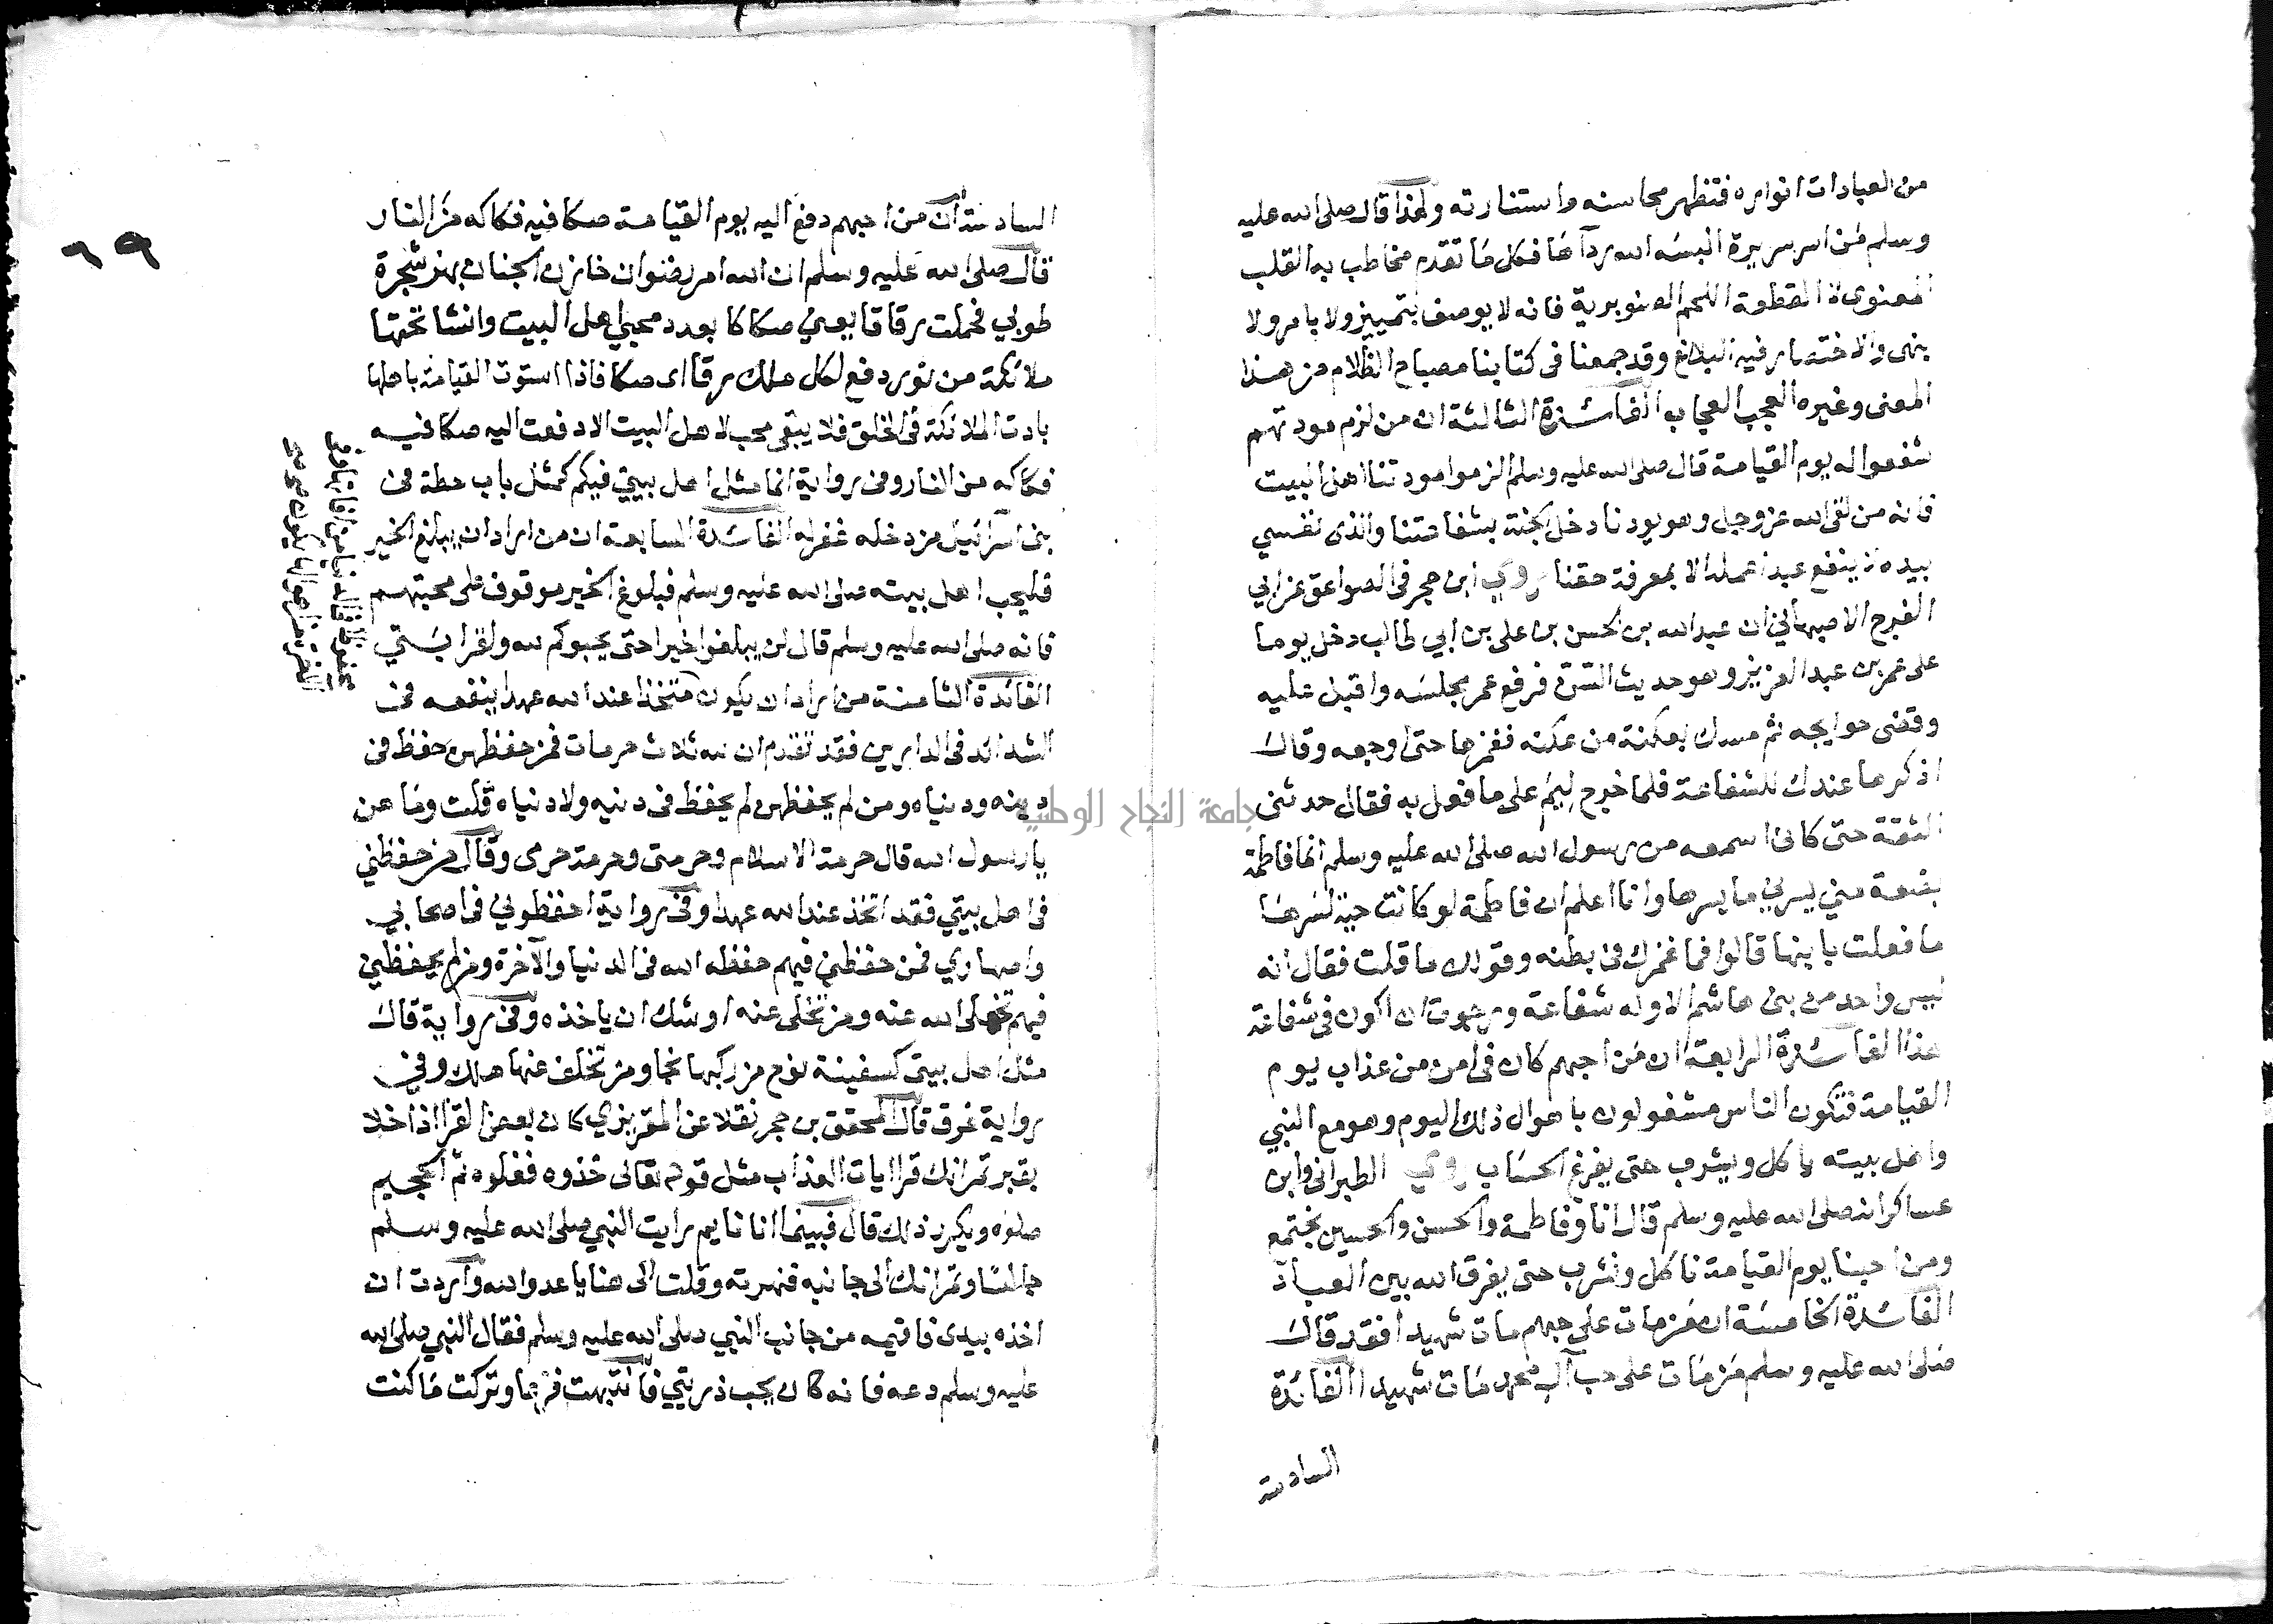 من العبادات انواره فتظهر محاسنه واستنارته ولهذا قال صلى الله عليه
وسلم من اسر سريرة البسه الله رداها فكل ما تقدم مخاطب به القلب
المعنوى لا القطعة اللحم الصنوبرية فانه لا يوصف بتمييز ولا بامر ولا
نهى والاختصار فيه البلاغ وقد جمعنا فى كتابنا مصباح الظلام من هذا
المعنى وغيره العجب العجاب الفائدة الثالثة ان من لزم مودتهم
شفعوا له يوم القيامة قال صلى الله عليه وسلم الزموا مودتنا اهل البيت
فانه من لقى الله عز وجل وهو يودنا دخل الجنة بشفاعتنا والذى نفسي
بيده لا ينفع عبدا عمله الا بمعرفة حقنا روي ابن حجر فى الصواعق عن ابي
الفرج الاصبهاني ان عبد الله بن الحسن بن على بن ابي طالب دخل يوما
على عمر بن عبد العزيز وهو حديث السن فرفع عمر مجلسه واقبل عليه
وقضى حوايجه ثم مسك بعكنة من عكنه فغمزها حتى اوجعه وقال
اذكر ما عندك للشفاعة فلما خرج ليم على ما فعل به فقال حدثنى
الثقة حتى كانى اسمعه من رسول الله صلى الله عليه وسلم انما فاطمة
بضعة مني يسرني ما يسرها وانا اعلم ان فاطمة لو كانت حية لسرها
ما فعلت بابنها قالوا فما غمزك فى بطنه وقولك ما قلت فقال انه
ليس واحد من بنى هاشم الا وله شفاعة ورجوت ان اكون فى شفاعة
هذا الفائدة الرابعة ان من احبهم كان فى امن من عذاب يوم
القيامة فتكون الناس مشغولون باهوال ذلك اليوم وهو مع النبي
واهل بيته ياكل ويشرب حتى يفرغ الحساب روي الطبرانى وابن
عساكر انه صلى الله عليه وسلم قال انا وفاطمة والحسن والحسين نجتمع
ومن احبنا يوم القيامة ناكل ونشرب حتى يفرق الله بين العباد
الفائدة الخامسة ان من مات على حبهم مات شهيدا فقد قال
صلى الله عليه وسلم من مات على حب آل محمد مات شهيدا الفائدة
السادسة
٦٩
السادسة ان من احبهم دفع اليه يوم القيامة صكا فيه فكاكه من النار
قال صلى الله عليه وسلم ان الله امر رضوان خازن الجنان بهز شجرة
طوبي فحملت رقاقا يعني صكاكا بعدد محبي اهل البيت وانشا تحتها
ملائكة من نور دفع لكل ملك رقا اى صكا فاذا استوت القيامة باهلها
نادت الملائكة فى الخلق فلا يبقى محب لاهل البيت الا دفعت اليه صكا فيه
فكاكه من النار وفى رواية انما مثل اهل بيتي فيكم كمثل باب حطة فى
بنى اسرائيل من دخله غفر له الفائدة السابعة ان من اراد ان يبلغ الخير
فليحب اهل بيته صلى الله عليه وسلم فبلوغ الخير موقوف على محبتهم
فانه صلى الله عليه وسلم قال لن يبلغوا خيرا حتى يحبوكم لله ولقرابتي
الفائدة الثامنة من اراد ان يكون متخذا عند الله عهدا ينفعه فى
الشدائد فى الدارين فقد تقدم ان لله ثلاث حرمات فمن حفظهن حفظ فى
دينه ودنياه ومن لم يحفظهن لم يحفظ فى دنيه ولا دنياه قلت وما هن
يا رسول الله قال حرمة الاسلام وحرمتى وحرمة حرمى وقال من حفظني
فى اهل بيتي فقد اتخذ عند الله عهدا وفى رواية احفظوني فى اصحابي
واصهاري فمن حفظني فيهم حفظه الله فى الدنيا والآخرة ومن لم يحفظني
فيهم تخلى الله عنه ومن تخلى عنه اوشك ان ياخذه وفى رواية قال
مثل اهل بيتى كسفينة نوح من ركبها نجا ومن تخلف عنها هلك وفي
رواية غرق قال المحقق بن حجر نقلا عن المقريزي كان بعض القرا اذا خلا
بقبر تمرلنك قرا ايات العذاب مثل قوله تعالى خذوه فغلوه ثم الجحيم
صلوه ويكرر ذلك قال فبينما انا نايم رايت النبي صلى الله عليه وسلم
جالسا وتمرلنك الى جانبه فنهرته وقلت الى هنا يا عدو الله واردت ان
اخذه بيدى فاقيمه من جانب النبي صلى الله عليه وسلم فقال النبي صلى الله
عليه وسلم دعه فانه كان يحب ذريتي فانتبهت فزعا وتركت ما كنت
جامعة النجاح الوطنية